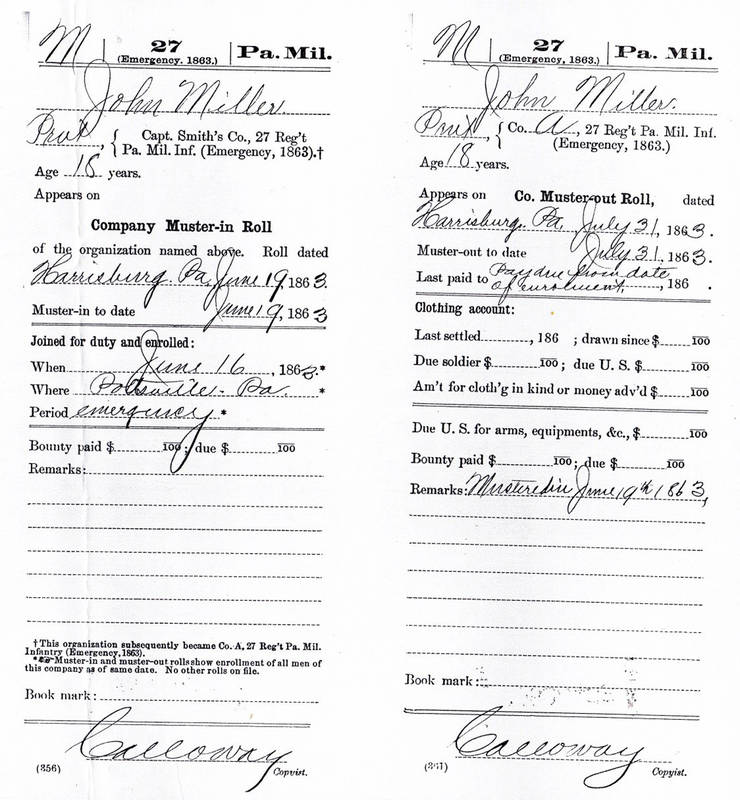 M | 27 (Emergency. 1863.) | Pa. Mil.
John Miller
Prvt, { Capt. Smith's Co., 27 Reg't
Pa. Mil. Inf. (Emergency, 1863).†
Age 18 years.
Appears on
Company Muster-in Roll
of the organization named above. Roll dated
Harrisburg Pa, June 19, 1863.
Muster-in to date June 19, 1863
Joined for duty and enrolled:
When June 16, 1863.*
Where Pottsville - Pa. *
Period emergency *
Bounty paid $ 100; due $ 100
Remarks:
†This organization subsequently became Co. A, 27 Reg't Pa. Mil.
Infantry (Emergency, 1863).
*Muster-in and muster-out rolls show enrollment of all men of
this company as of same date. No other rolls on file.
Book mark:
Calloway
(356) Copyist.
M | 27 (Emergency. 1863.) | Pa. Mil.
John Miller.
Prvt, { Co. A, 27 Reg't Pa. Mil. Inf.
(Emergency, 1863.)
Age 18 years.
Appears on Co. Muster-out Roll, dated
Harrisburg. Pa. July 31, 1863.
Muster-out to date July 31, 1863.
Last paid to Pay due from date
of enrolment, 186 .
Clothing account:
Last settled, 186 ; drawn since $ 100
Due soldier $ 100; due U. S. $ 100
Am't for cloth'g in kind or money adv'd $ 100
Due U. S. for arms, equipments, &c., $ 100
Bounty paid $ 100; due $ 100
Remarks: Mustered in June 19th 1863,
Book mark:
Calloway
Copyist.